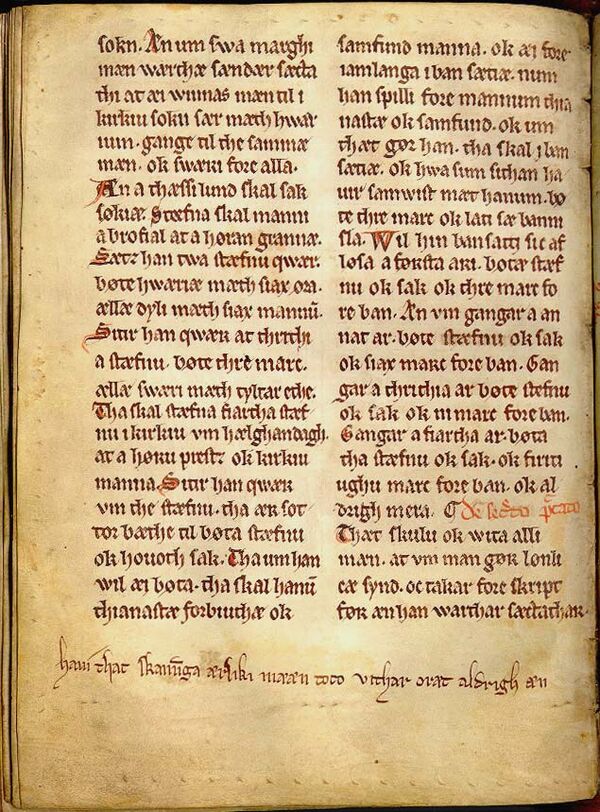 sokn. An um swa marghi
mæn wærchæ sændær sæcta
thi at æi winnas mæn til i
kirkiu soku sær mæth hwar
ium. gange til the sammæ
mæn. ok swæri fore alla.
An a thæssi lund skal sak
søkiæ. Stæfna skal manni
a brofial at a høran grannæ.
Sætr han twa stæfnu qwær.
bøte hwæriæ mæth siax ora.
ællæ dyli mæth siax mannū.
Sitir han qwær at thrithi
a stæfnu. bøte thre mare.
ællæ swæri mæth tyltar ethe.
Tha skal stæfna fiartha stæf
nu i kirkiu vm hælghandagh.
at a høru prestr ok kirkiu
manna. Sitir han qwær
vm the stæfnu. tha ær sot
tor bæthe til bøta stæfnu
ok hovoth sak. Tha um han
wil æi bøta. tha skal hanū
thianastæ forbiuthæ ok
samfund manna. ok æi fore
iamlanga i ban sætiæ. num
han spilli fore mannum thia
nastæ ok samfund. ok um
thæt gør han. tha skal i ban
sætiæ. ok hwa sum sithan ha
uir samwist mæt hanum. bø
te thre marc ok lati sæ banni
sla. Wil hin ban satti sic af
løsa a førsta ari. bøtæ stæf
nu ok sak ok thre marc fo
re ban. An vm gangar a an
nat ar. bøte stæfnu ok sak
ok siax marc fore ban. Gan
gar a thrithia ar bøte stefnu
ok sak ok ni marc fore ban.
Gangar a fiartha ar. bøta
tha stæfnu ok sak. ok firiti
ughu marc fore ban. ok al
drigh mera.
Thæt skulu ok wita alli
mæn. at vm man gør lønli
cæ synd. oc takar fore skript
før æn han warthar sæctathar.
haui that skanūga ærliki mæn toto vithar orat aldrigh æn